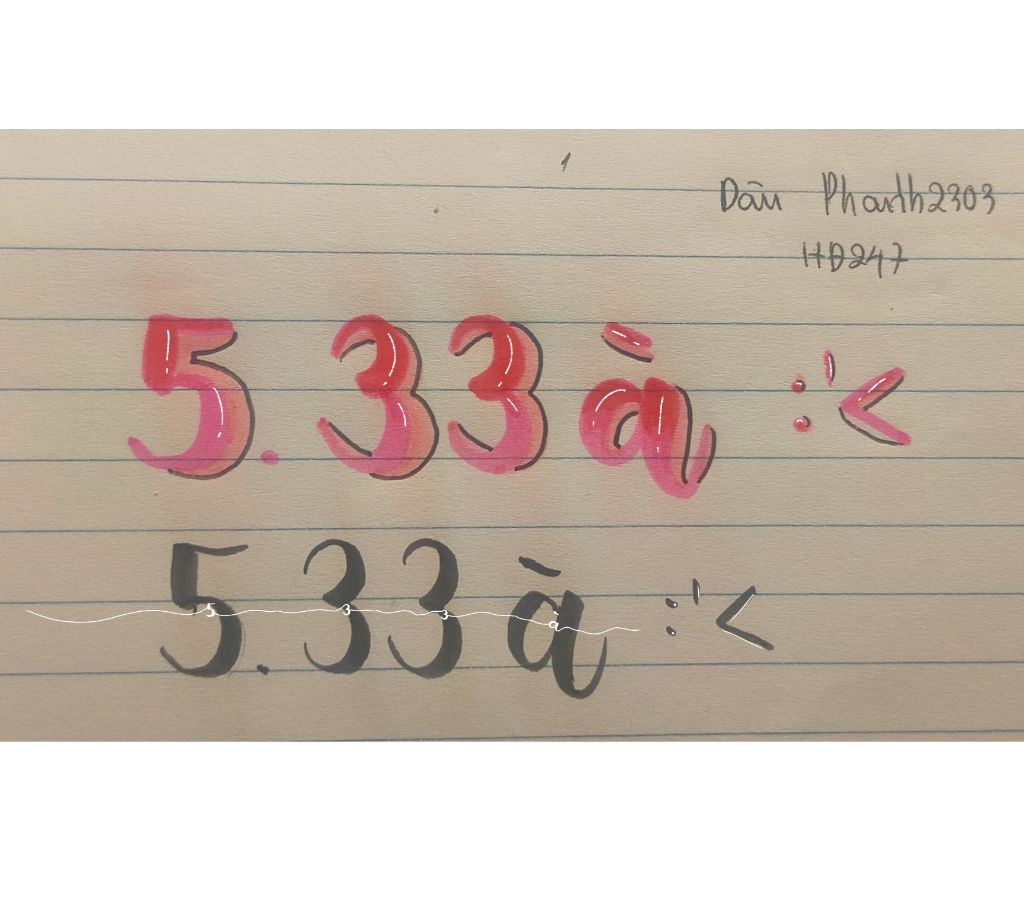 Dấu Phanth2303
HĐ247
5.33 à :'<
5.33 à :'<
5 3 3 à